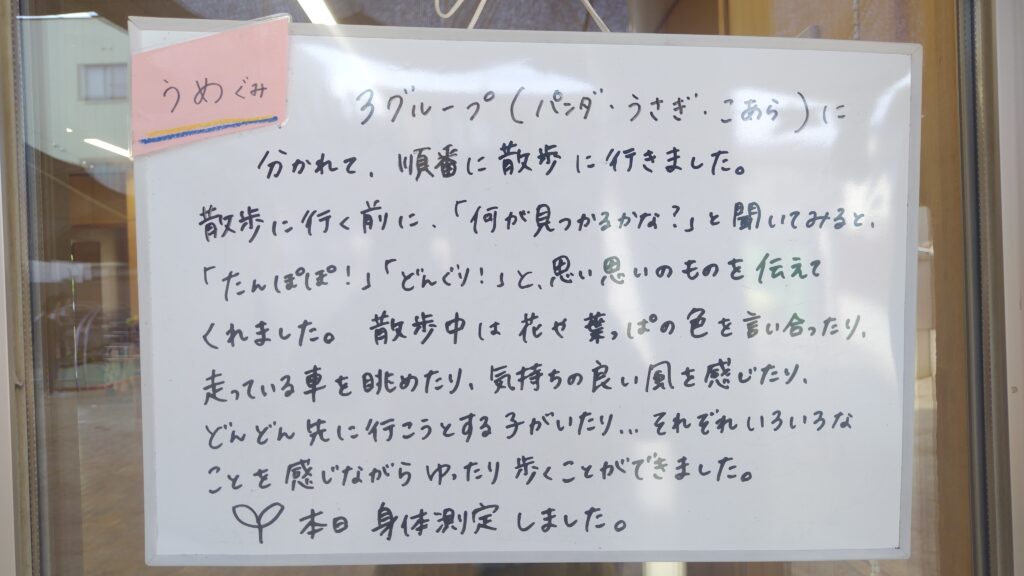 うめぐみ
3グループ(パンダ・うさぎ・こあら)に
分かれて、順番に散歩に行きました。
散歩に行く前に、「何が見つかるかな?」と聞いてみると、
「たんぽぽ!」「どんぐり!」と、思い思いのものを伝えて
くれました。散歩中は花や葉っぱの色を言い合ったり、
走っている車を眺めたり、気持ちの良い風を感じたり、
どんどん先に行こうとする子がいたり...それぞれいろいろな
ことを感じながらゆったり歩くことができました。
本日 身体測定しました。